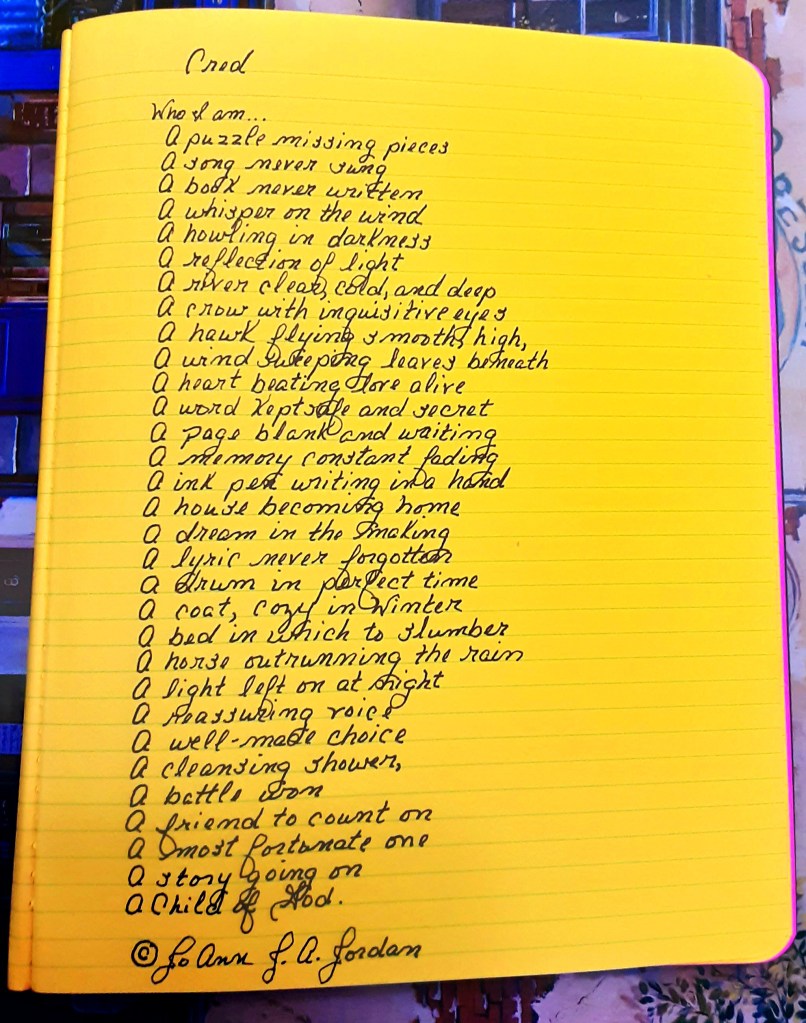 Cred
Who I am...
A puzzle missing pieces
A song never sung
A book never written
A whisper on the wind
A howling in darkness
A reflection of light
A river clear, cold, and deep
A crow with inquisitive eyes
A hawk flying smooth, high,
A wind sweeping leaves beneath
A heart beating love alive
A word kept safe and secret
A page blank and waiting
A memory constant fading
A ink pen writing in a hand
A house becoming home
A dream in the making
A lyric never forgotten
A drum in perfect time
A coat, cozy in Winter
A bed in which to slumber
A horse outrunning the rain
A light left on at night
A reassuring voice
A well-made choice
A cleansing shower,
A battle won
A friend to count on
A most fortunate one
A story going on
A Child of God.
© JoAnn J. A. Jordan